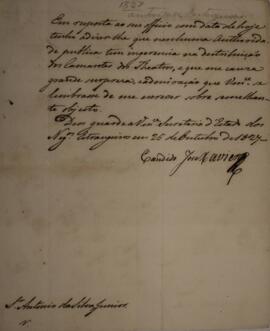 1827
Em resposta ao seu officio com data de hoje
tenho a dizer lhe que nenhuma Authorida
de publica tem ingerencia na destribuição
dos Camarotes do Theatro, e que me causa
grande surpresa, e admiração que Vmce. se
lembrasse de me escrever sobre semelhan
te objecto.
Deos guarde a Vmce. Secretaria d'Estado dos
Negos. Estrangeiros em 25 de Outubro de 1827.
Candido José Xavier
Sr. Antonio da Silva Junior